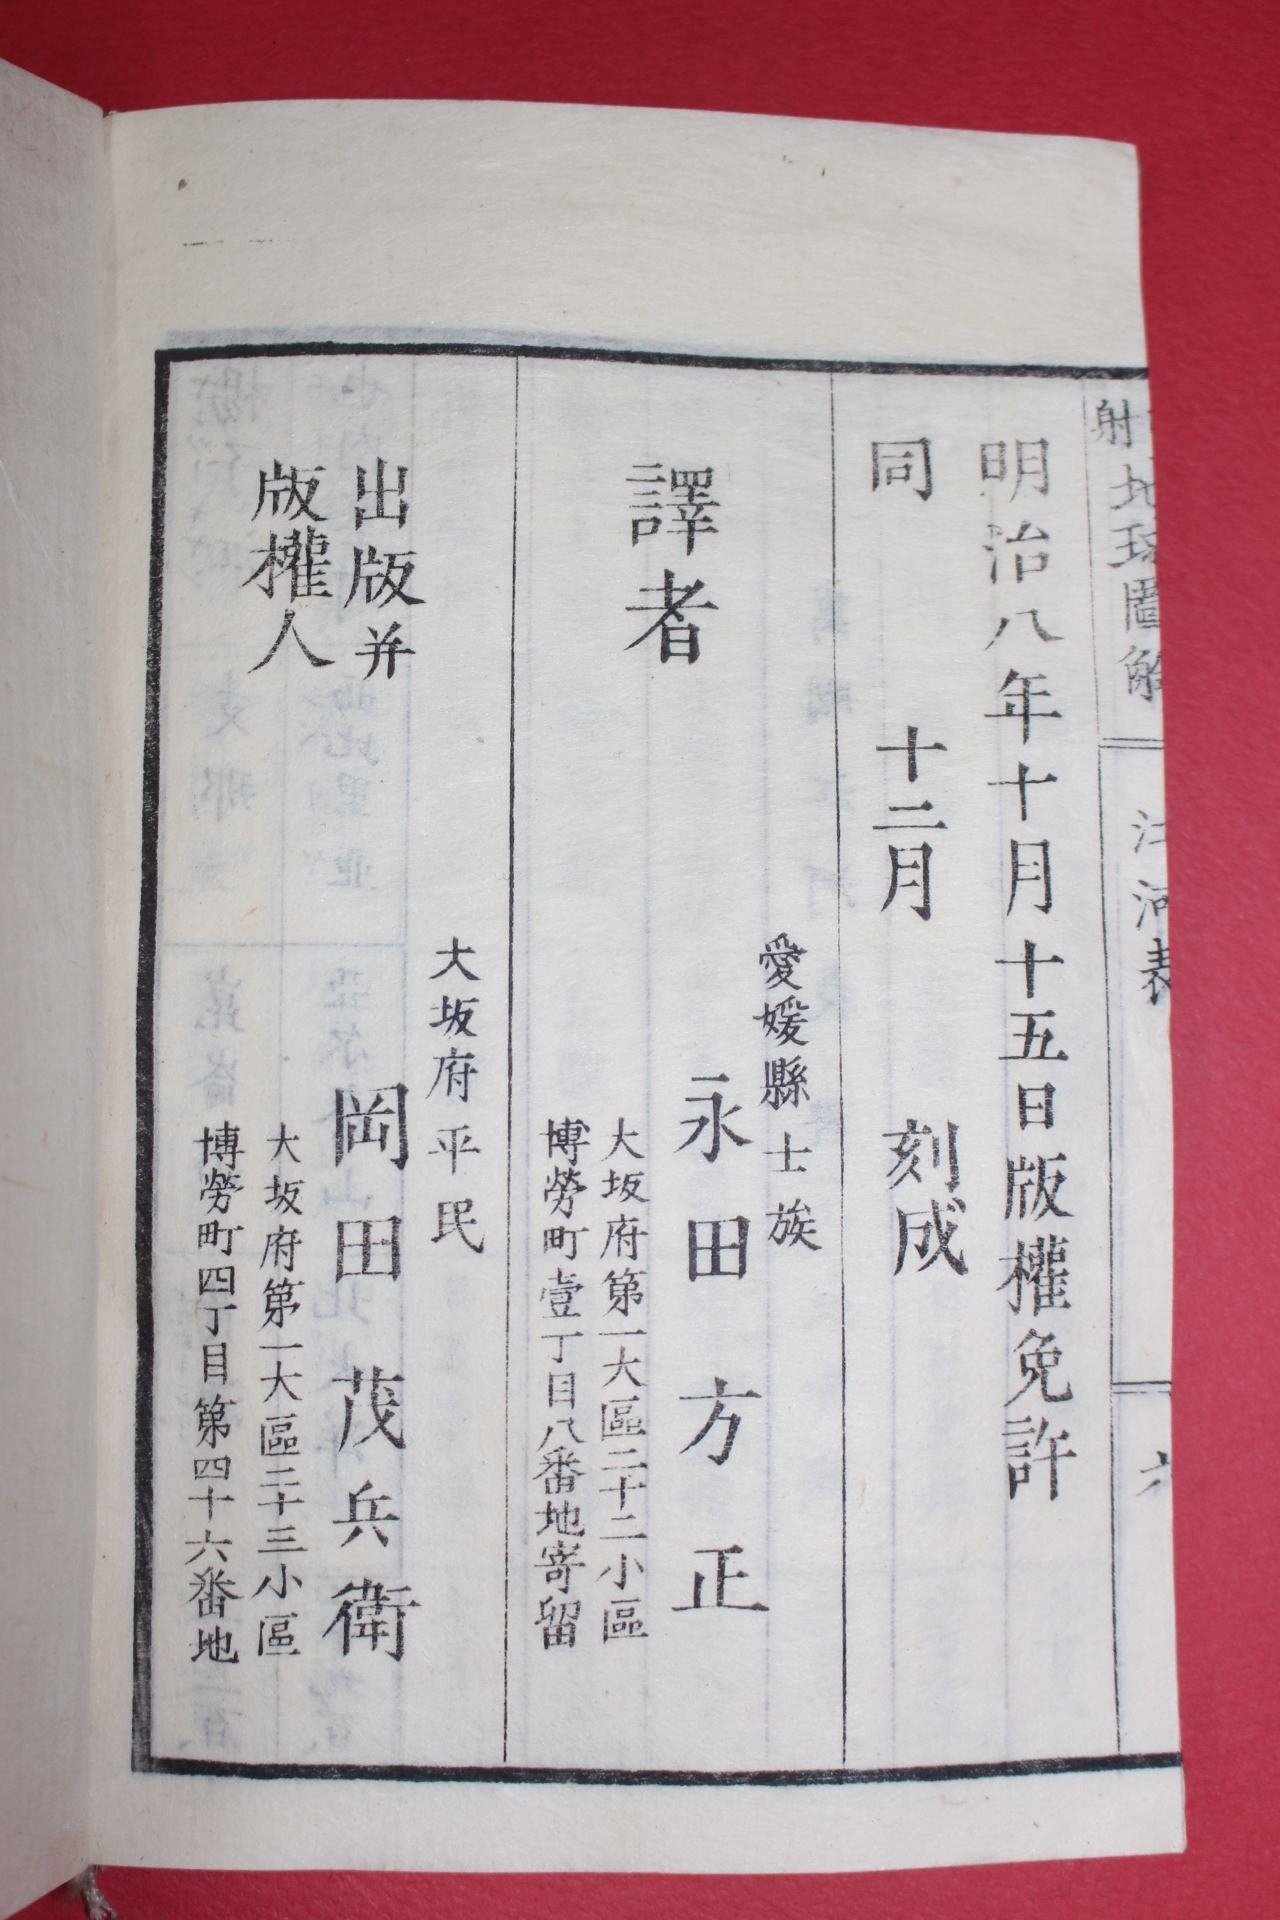 射
地球圖解
江河表
六
明治八年十月十五日版權免許
同 十二月 刻成
譯者
愛媛縣士族
永田方正
大坂府第一大區二十二小區
博勞町壹丁目八番地寄留
出版并
版權人
大坂府平民
岡田茂兵衛
大坂府第一大區二十三小區
博勞町四丁目第四十六番地